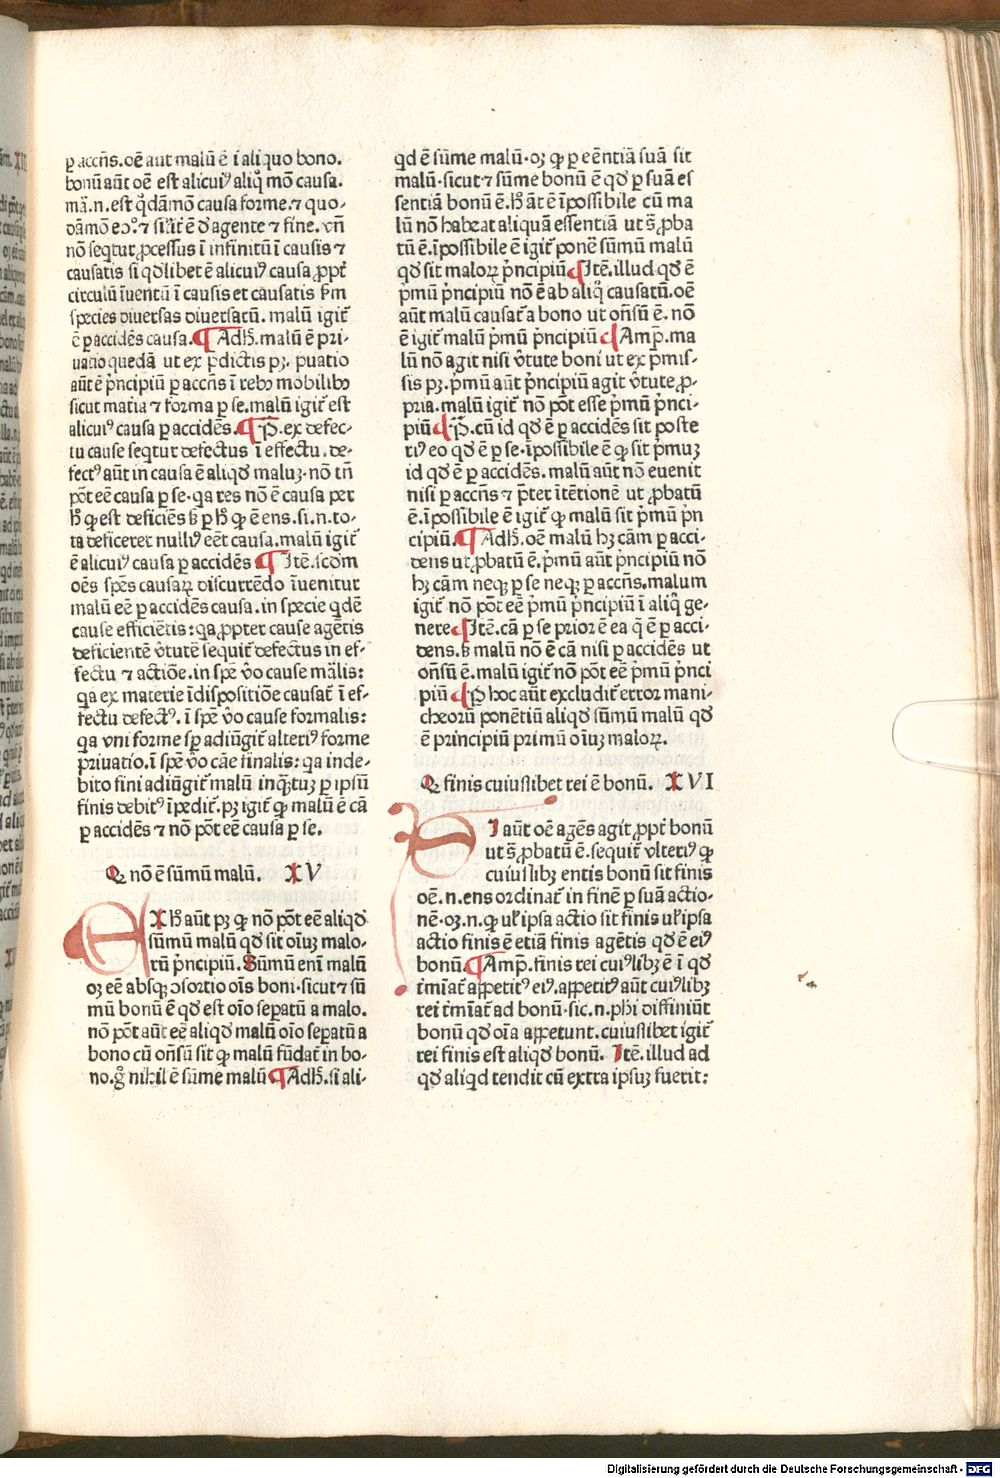 ꝑ accn̄s. oē aut malū ē ī aliquo bono.
bonū aūt oē est alicuiꝰ aliq̊ mō causa.
mā. n. est q̊dāmō causa forme. ⁊ quo-
dāmō ecō. ⁊ sil̄r ē d̄ agente ⁊ fine. vn̄
nō seqtur ꝓcessus ī infinitū ī causis ⁊
causatis si qdlibet ē alicuiꝰ causa ꝓpt̄
circulū īuentū ī causis et causatis ẜm
species diuersas diuersatū. malū igit̄
ē ꝑ accidēs causa. ¶ Adh̄. malū ē pri-
uatio quedā ut ex p̄dictis pꝫ. puatio
aūt ē p̄ncipiū ꝑ accn̄s ī rebꝰ mobilibꝰ
sicut mat̄ia ⁊ forma ꝑ se. malū igit̄ est
alicuiꝰ causa ꝑ accidēs. ¶ P̄. ex defec-
tu cause seqtur defectus ī effectu. de-
fectꝰ aūt in causa ē aliqd maluꝫ. nō tn̄
pōt eē causa ꝑ se. qa res nō ē causa per
h̄ ꝙ est deficiēs ẜ ꝑ h̄ ꝙ ē ens. si. n. to-
ta deficeret nulliꝰ eēt causa. malū igit̄
ē alicuiꝰ causa ꝑ accidēs ¶ Itē. scdm
oēs spēs causaꝝ discurrēdo īuenitur
malū eē ꝑ accidēs causa. in specie qdē
cause efficiētis: qa ꝓpter cause agētis
deficientē v̄tutē sequit̄ defectus in ef-
fectu ⁊ actiōe. in spē v̄o cause māl̄is:
qa ex materie īdispositiōe causat̄ ī ef-
fectu defectꝰ. ī spē v̄o cause formalis:
qa vni forme sꝑ adiūgit̄ alteriꝰ forme
priuatio. ī spē v̄o cāe finalis: qa inde-
bito fini adiūgit̄ malū inq̊tuꝫ ꝑ ipsū
finis debitꝰ īpedit̄. pꝫ igit̄ ꝙ malū ē cā
ꝑ accidēs ⁊ nō pōt eē causa ꝑ se.
Q nō ē sūmū malū. XV
EX h̄ aūt pꝫ ꝙ nō pōt eē aliqd
sūmū malū qd sit oīuꝫ malo-
rū p̄ncipiū. Sūmū eni malū
oꝫ eē absqꝫ ꝯsortio oīs boni. sicut ⁊ sū
mū bonū ē qd est oīo sepatū a malo.
nō pōt aūt eē aliqd malū oīo sepatū a
bono cū on̄sū sit ꝙ malū fūdat̄ in bo-
no. g̊ nihil ē sūme malū ¶ Adh̄. si ali-
qd ē sūme malū. oꝫ ꝙ ꝑ eēntiā suā sit
malū. sicut ⁊ sūme bonū ē qd ꝑ suā es
sentiā bonū ē. h̄ āt ē īpossibile cū ma
lū nō habeat aliquā essentiā ut s̄ ꝓba
tū ē. īpossibile ē igit̄ ponē sūmū malū
qd sit maloꝝ p̄ncipiū ¶ Itē. illud qd ē
p̄mū p̄ncipiū nō ē ab aliq̊ causatū. oē
aūt malū causat̄ a bono ut on̄sū ē. nō
ē igit̄ malū p̄mū p̄ncipiū ¶ Amp̄. ma
lū nō agit nisi v̄tute boni ut ex p̄mis-
sis pꝫ. p̄mū aūt p̄ncipiū agit v̄tute ꝓ-
pria. malū igit̄ nō pōt esse p̄mū p̄nci-
piū ¶ P̄. cū id qd ē ꝑ accidēs sit poste
riꝰ eo qd ē ꝑ se. īpossibile ē ꝙ sit p̄muꝫ
id qd ē ꝑ accidēs. malū aūt nō euenit
nisi ꝑ accn̄s ⁊ p̄ter ītētionē ut ꝓbatū
ē. īpossibile ē igit̄ ꝙ malū sit p̄mū p̄n
cipiū. ¶ Adh̄. oē malū hꝫ cām ꝑ acci-
dens ut ꝓbatū ē. p̄mū aūt p̄ncipiū nō
hꝫ cām neqꝫ ꝑ se neqꝫ ꝑ accn̄s. malum
igit̄ nō pōt eē p̄mū p̄ncipiū ī aliq̊ ge-
nere ¶ Itē. cā ꝑ se prior ē ea q̄ ē ꝑ acci-
dens. ẜ malū nō ē cā nisi ꝑ accidēs ut
on̄sū ē. malū igit̄ nō pōt eē p̄mū p̄nci
piū ¶ P̱ hoc aūt excludit̄ error mani-
cheorū ponētiū aliqd sūmū malū qd
ē principiū primū oīuꝫ maloꝝ.
Q finis cuiuslibet rei ē bonū. XVI
SI aūt oē agēs agit ꝓpt̄ bonū
ut s̄ ꝓbatū ē. sequit̄ vlteriꝰ ꝙ
cuiuslibꝫ entis bonū sit finis
oē. n. ens ordinat̄ in finē ꝑ suā actio-
nē. oꝫ. n. ꝙ ul̄ ipsa actio sit finis ul̄ ipsa
actio finis ē etiā finis agētis qd ē eiꝰ
bonū. ¶ Amp̄. finis rei cuiꝰlibꝫ ē ī qd
t̄mīat̄ appetitꝰ eiꝰ. appetitꝰ aūt cuiꝰlibꝫ
rei t̄mīat̄ ad bonū. sic. n. phi diffiniūt
bonū qd oīa appetunt. cuiuslibet igit̄
rei finis est aliqd bonū. Itē. illud ad
qd aliqd tendit cū extra ipsuꝫ fuerit:
Digitalisierung gefördert durch die Deutsche Forschungsgemeinschaft - DFG